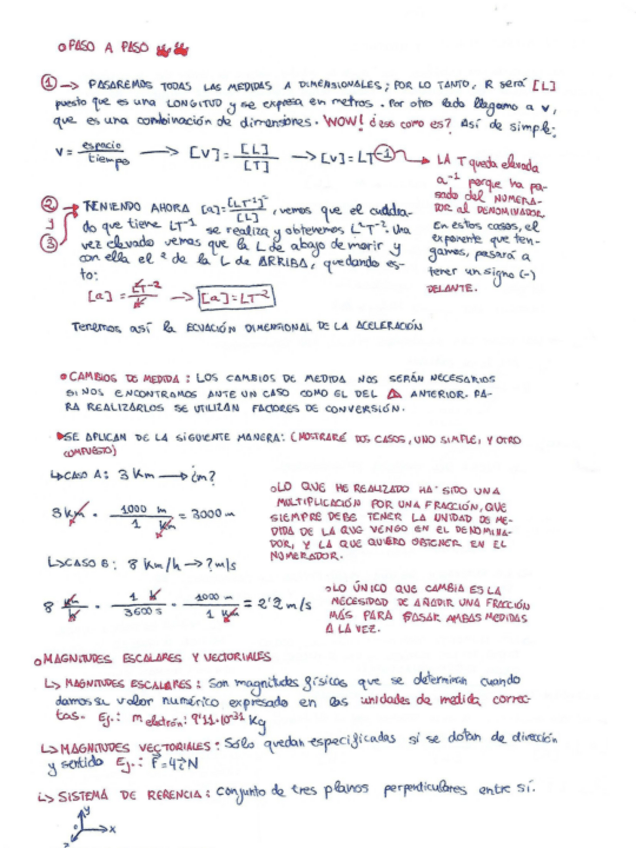 o PASO A PASO
① → PASAREMOS TODAS LAS MEDIDAS A DIMENSIONALES; POR LO TANTO, R será [L]
puesto que es una LONGITUD y se expresa en metros. Por otro lado llegamo a v,
que es una combinación de dimensiones. WOW! ¿eso como es? Así de simple:
v = espacio/tiempo → [v] = [L]/[T] → [v] = LT⁻¹
LA T queda elevada
a⁻¹ porque ha pa-
sado del NUMERA-
TOR al DENOMINADOR
En estos casos, el
exponente que ten-
gamos, pasará a
tener un signo (-)
DELANTE.
② y ③ → TENIENDO AHORA [a] = [LT⁻¹]²/[L], vemos que el cuadra-
do que tiene LT⁻¹ se realiza y obtenemos L²T⁻². Una
vez elevado vemos que la L de abajo de morir y
con ella el ² de la L de ARRIBA, quedando es-
to:
[a] = LT⁻²/L → [a] = LT⁻²
Tenemos así la ECUACIÓN DIMENSIONAL DE LA ACELERACIÓN
• CAMBIOS DE MEDIDA: LOS CAMBIOS DE MEDIDA NOS SERÁN NECESARIOS
SI NOS ENCONTRAMOS ANTE UN CASO COMO EL DEL ANTERIOR. PA-
RA REALIZARLOS SE UTILIZAN FACTORES DE CONVERSIÓN.
SE APLICAN DE LA SIGUIENTE MANERA: (MOSTRARÉ DOS CASOS, UNO SIMPLE, Y OTRO
COMPUESTO)
↳ CASO A: 3 Km → ¿m?
3 Km · 1000 m/1 Km = 3000 m
o LO QUE HE REALIZADO HA SIDO UNA
MULTIPLICACIÓN POR UNA FRACCIÓN, QUE
SIEMPRE DEBE TENER LA UNIDAD DE ME-
DIDA DE LA QUE VENGO EN EL DENOMINA-
DOR, Y LA QUE QUIERO OBTENER EN EL
NUMERADOR.
↳ CASO B: 8 Km/h → ? m/s
8 Km/h · 1 h/3600 s · 1000 m/1 Km = 2'2 m/s
o LO ÚNICO QUE CAMBIA ES LA
NECESIDAD DE AÑADIR UNA FRACCIÓN
MÁS PARA PASAR AMBAS MEDIDAS
A LA VEZ.
o MAGNITUDES ESCALARES Y VECTORIALES
↳ MAGNITUDES ESCALARES: Son magnitudes físicas que se determinan cuando
damos su valor numérico expresado en las unidades de medida correc-
tas. Ej.: m electrón: 9'11·10⁻³¹ Kg
↳ MAGNITUDES VECTORIALES: Sólo quedan especificadas si se dotan de dirección
y sentido Ej.: F⃗ = 42 N
↳ SISTEMA DE RERENCIA: Conjunto de tres planos perpendiculares entre sí.
y
o x
z